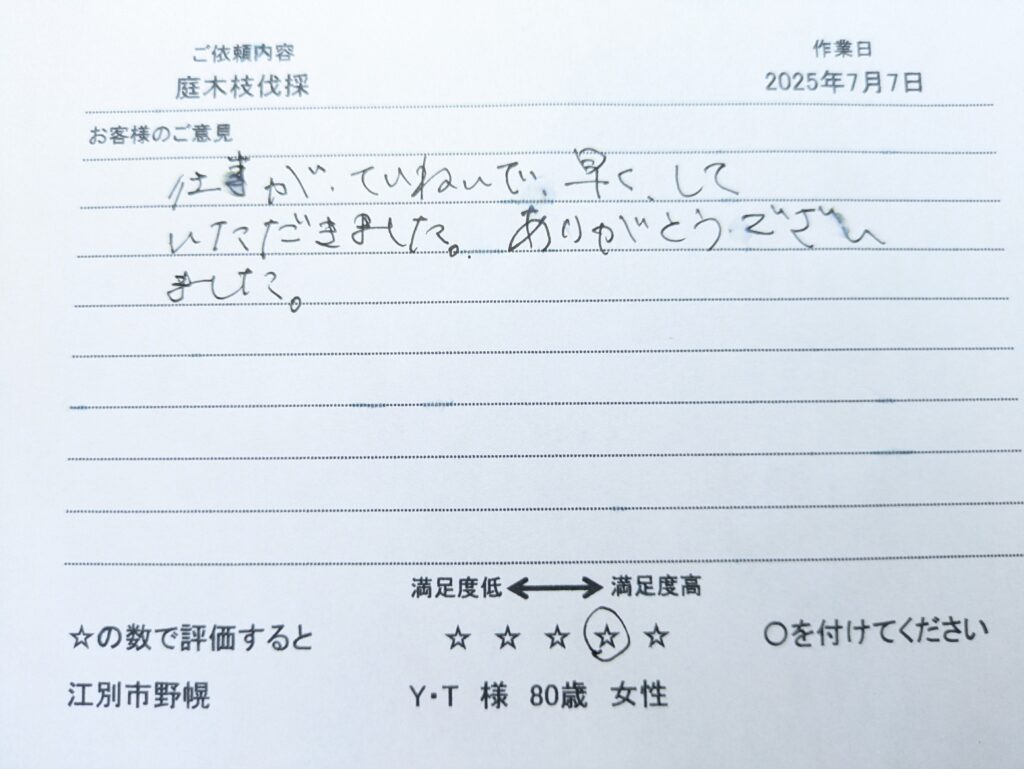 ご依頼内容
作業日
庭木枝伐採
2025年7月7日
お客様のご意見
仕事が、ていねいで、早く、して
いただきました。ありがとうございい
ました。
満足度低 ⟷ 満足度高
☆の数で評価すると ☆ ☆ ☆ ☆ ☆ ○を付けてください
江別市野幌 Y・T 様 80歳 女性